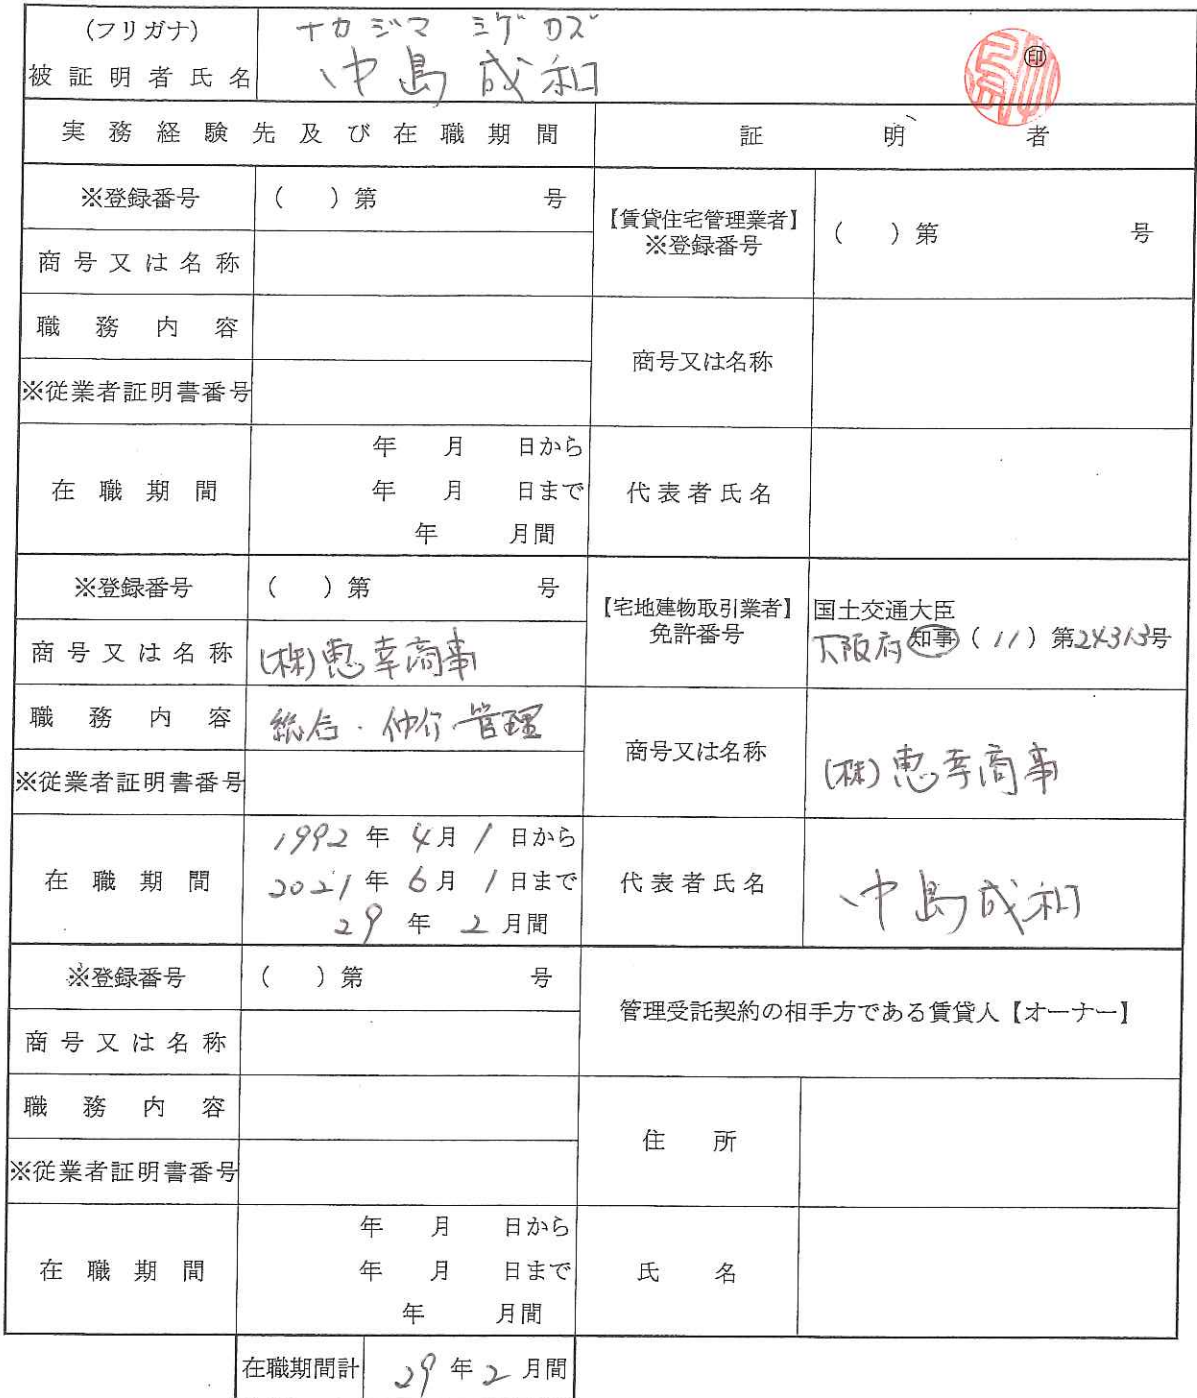 (フリガナ) ナカジマ シゲカズ
被証明者氏名 中島成和 ㊞
実務経験先及び在職期間 証明者
※登録番号 ( ) 第 号
【賃貸住宅管理業者】
※登録番号 ( ) 第 号
商号又は名称
職務内容
商号又は名称
※従業者証明書番号
年 月 日から
在職期間 年 月 日まで
年 月間
代表者氏名
※登録番号 ( ) 第 号
【宅地建物取引業者】
免許番号
国土交通大臣
大阪府 知事 (11) 第24313号
商号又は名称 (株)恵幸商事
職務内容 総合・仲介・管理
商号又は名称 (株)恵幸商事
※従業者証明書番号
1992年 4月 1日から
在職期間 2021年 6月 1日まで
29年 2月間
代表者氏名 中島成和
※登録番号 ( ) 第 号
管理受託契約の相手方である賃貸人【オーナー】
商号又は名称
職務内容
住所
※従業者証明書番号
年 月 日から
在職期間 年 月 日まで
年 月間
氏名
在職期間計 29年2月間